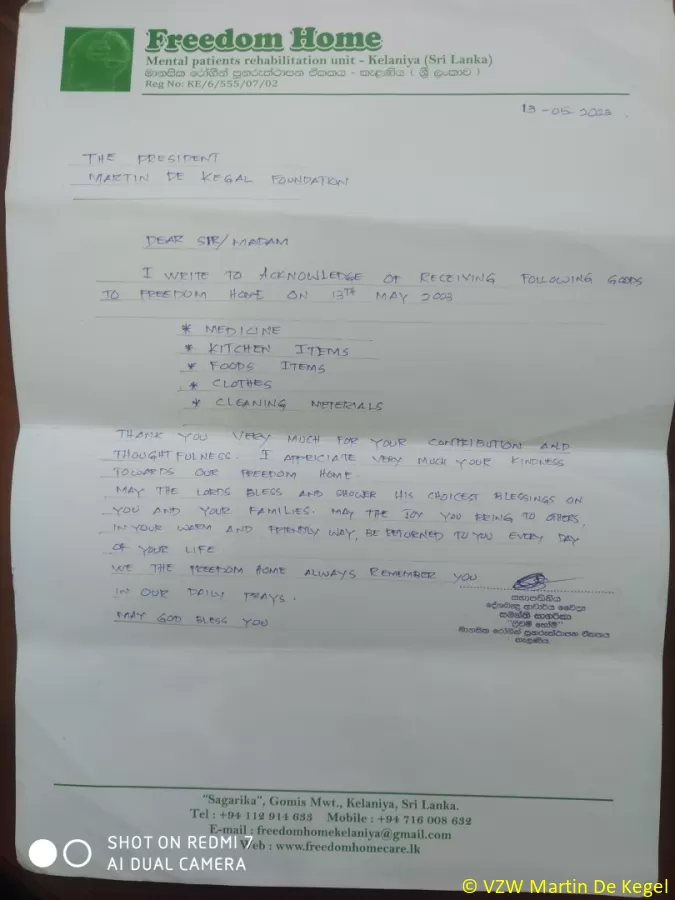 Freedom Home
Mental patients rehabilitation unit - Kelaniya (Sri Lanka)
මානසික රෝගීන් පුනරුත්ථාපන ඒකකය - කැළණිය ( ශ්‍රී ලංකාව )
Reg No: KE/6/555/07/02
13-05-2023.
THE PRESIDENT
MARTIN DE KEGAL FOUNDATION
DEAR SIR/MADAM
I WRITE TO ACKNOWLEDGE OF RECEIVING FOLLOWING GOODS
TO FREEDOM HOME ON 13TH MAY 2003
* MEDICINE
* KITCHEN ITEMS
* FOODS ITEMS
* CLOTHES
* CLEANING METERIALS
THANK YOU VERY MUCH FOR YOUR CONTRIBUTION AND
THOUGHTFULNESS. I APPRICIATE VERY MUCH YOUR KINDNESS
TOWARDS OUR FREEDOM HOME.
MAY THE LORDS BLESS AND SHOWER HIS CHOICEST BLESSINGS ON
YOU AND YOUR FAMILIES. MAY THE JOY YOU BRING TO OTHERS,
IN YOUR WARM AND FRIENDLY WAY, BE RETURNED TO YOU EVERY DAY
OF YOUR LIFE
WE THE FREEDOM HOME ALWAYS REMEMBER YOU
IN OUR DAILY PRAYS.
MAY GOD BLESS YOU
සභාපතිනිය
මානසික රෝගීන් පුනරුත්ථාපන ඒකකය
කැළණිය.
"Sagarika", Gomis Mwt., Kelaniya, Sri Lanka.
Tel : +94 112 914 633 Mobile : +94 716 008 632
E-mail : freedomhomekelaniya@gmail.com
Web : www.freedomhomecare.lk
SHOT ON REDMI 7
AI DUAL CAMERA
© VZW Martin De Kegel